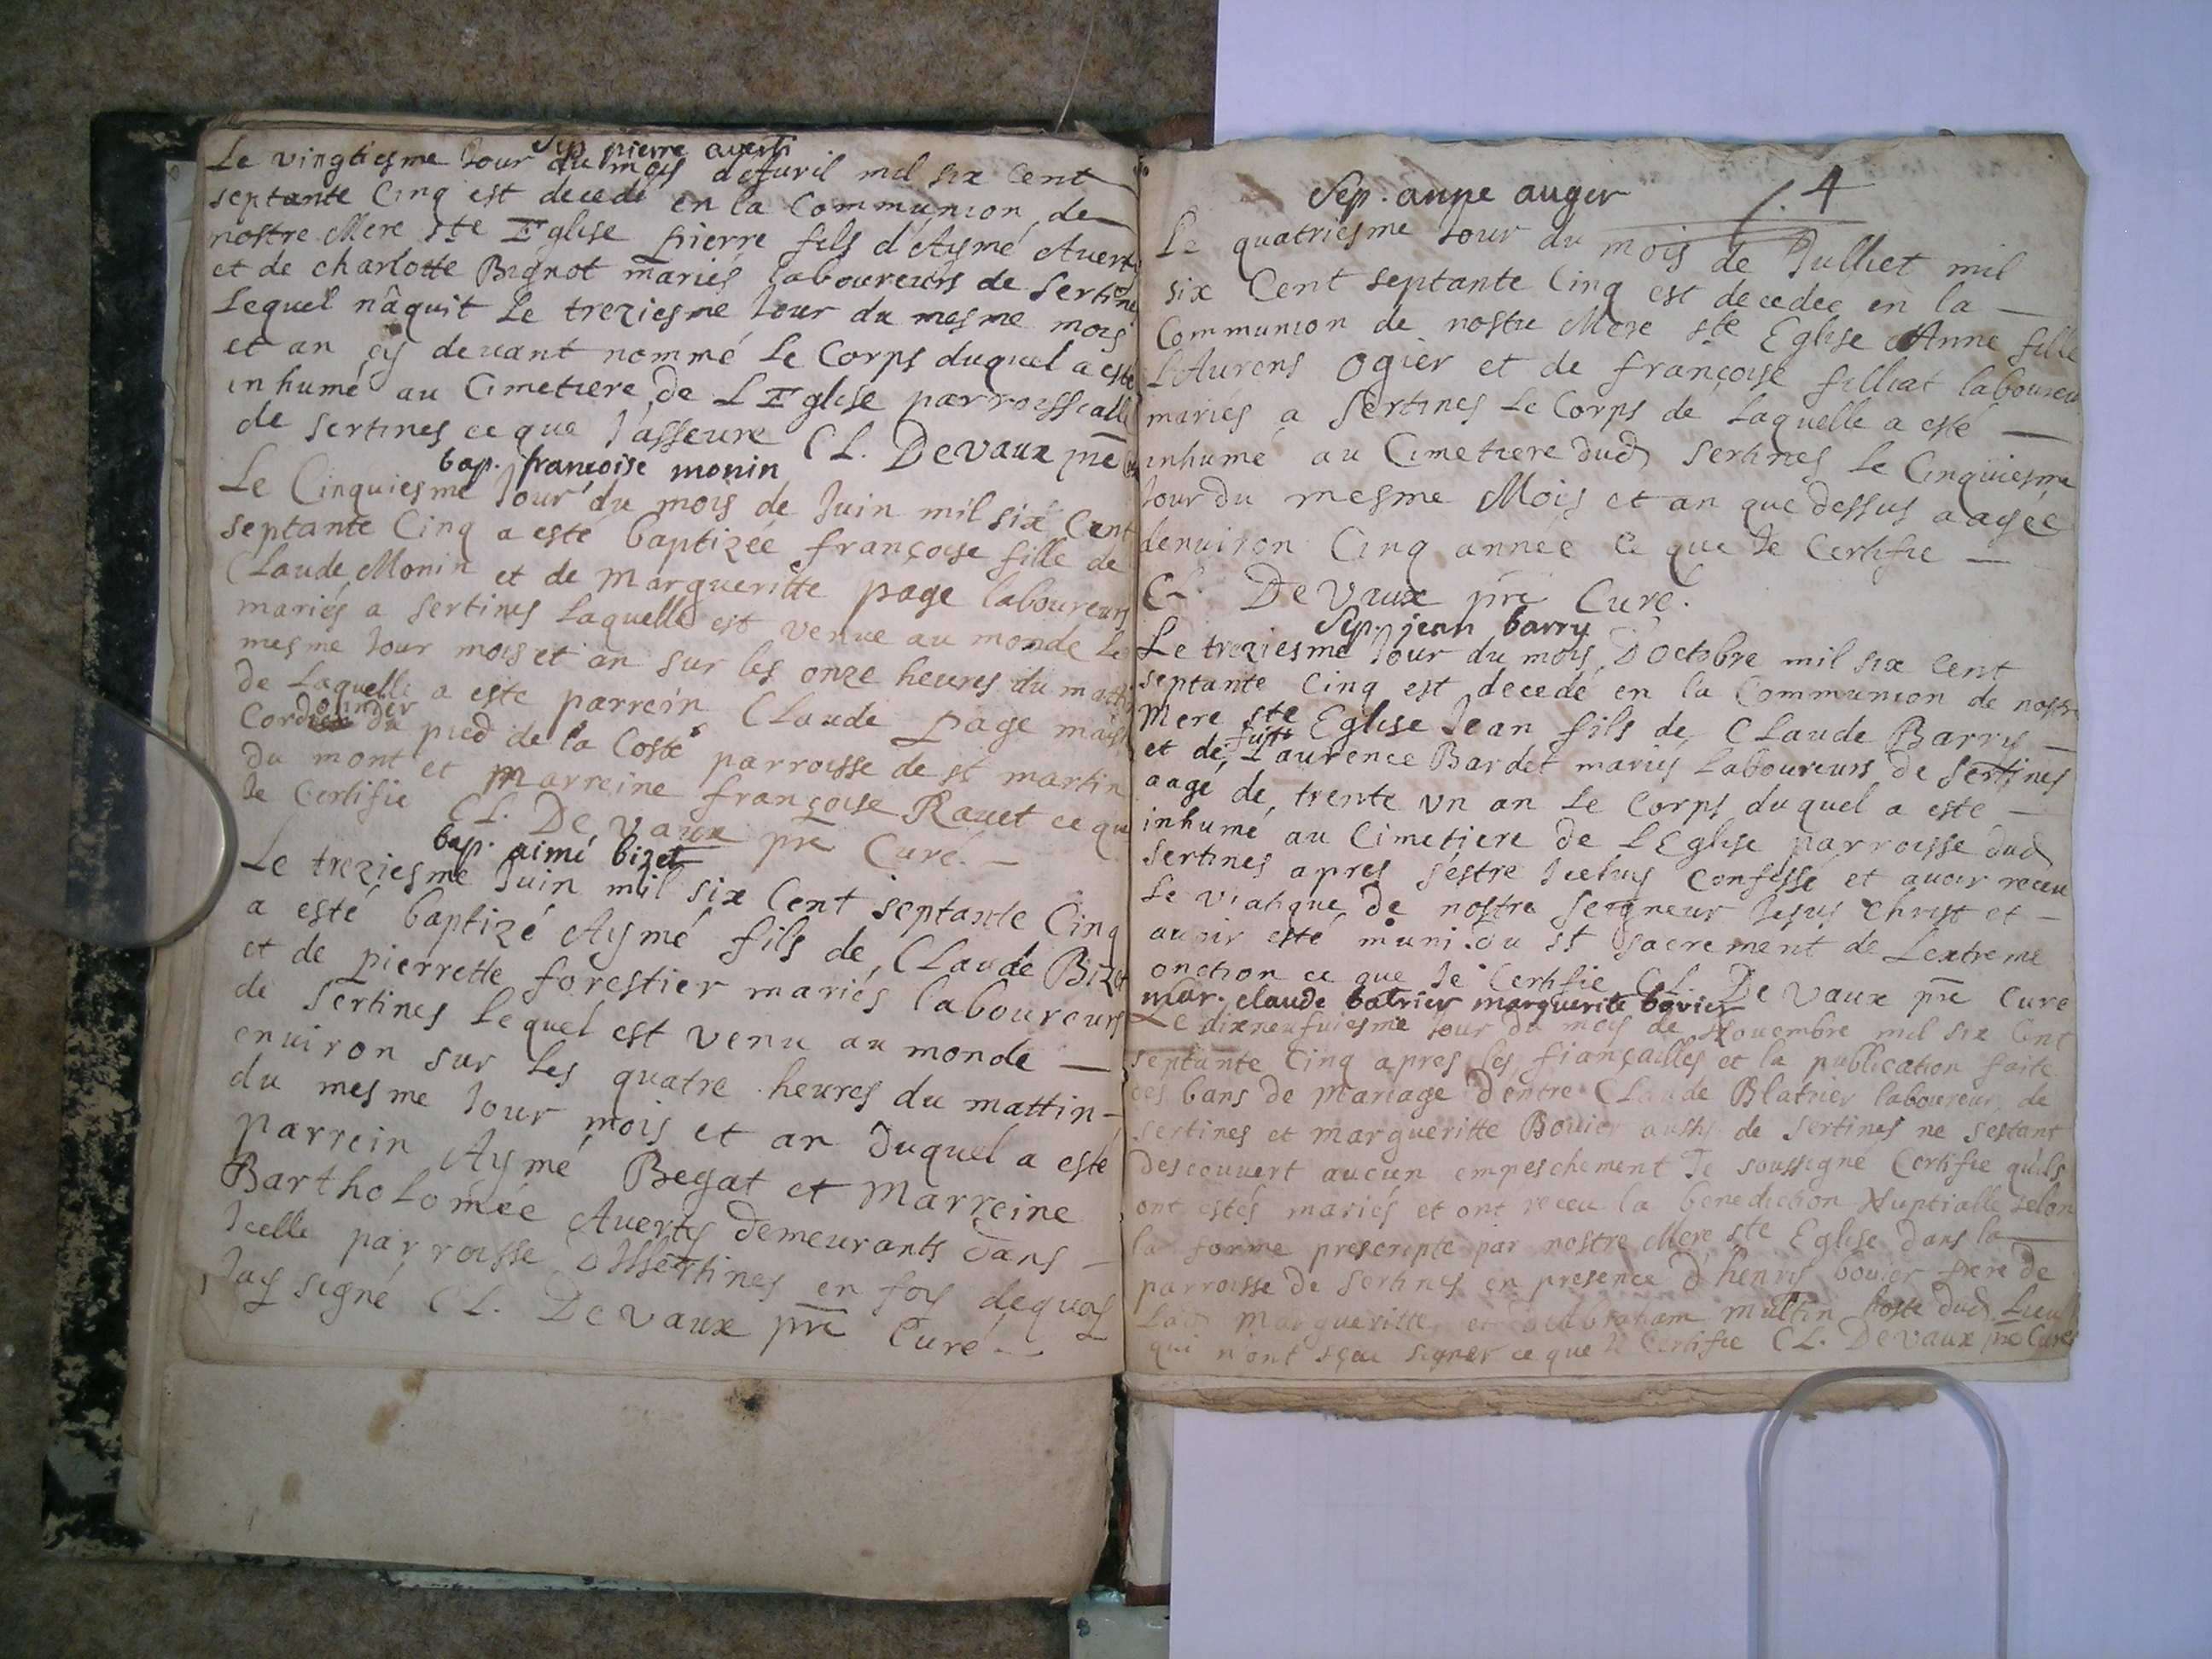 Sep. pierre averti
Le vingtiesme Jour du mois d'Auril mil six Cent
septante Cinq est decedé en la Communion de
nostre Mere ste Eglise pierre fils d'Aymé Auerty
et de charlotte Bignot mariés laboureurs de Sertine
Lequel nâquit Le treziesme Jour du mesme mois
et an cy deuant nommé Le Corps duquel a esté
inhumé au Cimetiere de L'Eglise parroissialle
de Sertines ce que J'asseure CL. Devaux pre
bap. françoise monin
Le Cinquiesme Jour du mois de Juin mil six Cent
septante Cinq a esté baptizée françoise fille de
CLaude Monin et de Margueritte page laboureurs
mariés a Sertines Laquelle est venue au monde Le
mesme Jour mois et an sur les onze heures du mattin
de Laquelle a este parrein CLaude page
Cordonnier du pied de la Coste parroisse de st martin
du mont et Marreine françoise Rauet ce que
Je Certifie CL. Devaux pre Curé. —
bap. aimé bizet
Le treziesme Juin mil six Cent septante Cinq
a esté baptizé Aymé fils de CLaude Bizet
et de pierrette forestier mariés laboureurs
de Sertines Lequel est venu au monde —
enuiron sur Les quatre heures du mattin —
du mesme Jour mois et an duquel a esté
parrein Aymé Begat et Marreine
Bartholomée Auerty demeurants dans —
Icelle parroisse d'Issertines en foy dequoy
J'ay signé CL. Devaux pre Curé —
4
Sep. anne auger
Le quatriesme Jour du mois de Julliet mil
six Cent septante Cinq est decedee en la —
Communion de nostre Mere ste Eglise Anne fille
LAurens Ogier et de françoise filliat laboureu
mariés a Sertines Le Corps de Laquelle a esté —
inhumé au Cimetiere dud Sertines Le Cinquiesme
Jour du mesme Mois et an que dessus aagée
denuiron Cinq année Ce que Je Certifie —
CL. Devaux pre Curé.
Sep. jean barry
Le treziesme Jour du mois D'octobre mil six Cent
septante Cinq est decedé en la Communion de nostre
Mere ste Eglise Jean fils de CLaude Barry —
et de Laurence Bardet mariés Laboureurs de Sertines
aagé de trente un an Le Corps duquel a este —
inhumé au Cimetiere de L'Eglise parroisse dud
Sertines apres s'estre Iceluy Confessé et auoir receu
Le viatique de nostre Seigneur Jesus Christ et —
auoir esté muni du st sacrement de Lextreme
onction ce que Je Certifie CL. Devaux pre Curé
mar. claude batrier marguerite bovier
Le dixneufuiesme Jour du mois de Nouembre mil six Cent
septante Cinq apres les fiançailles et la publication faite
des bans de Mariage d'entre CLaude Blatrier laboureur de
Sertines et margueritte Bouier aussy de Sertines ne s'estant
descouuert aucun empeschement Je soussigné Certifie qu'ils
ont estés mariés et ont receu la benediction Nuptialle selon
la forme prescripte par nostre Mere ste Eglise dans la —
parroisse de Sertines en presence d'henry bouier pere de
Lad Margueritte et d'Abraham Multin hoste dud Lieu
qui n'ont sceu signer ce que Je Certifie CL. Devaux pre Curé